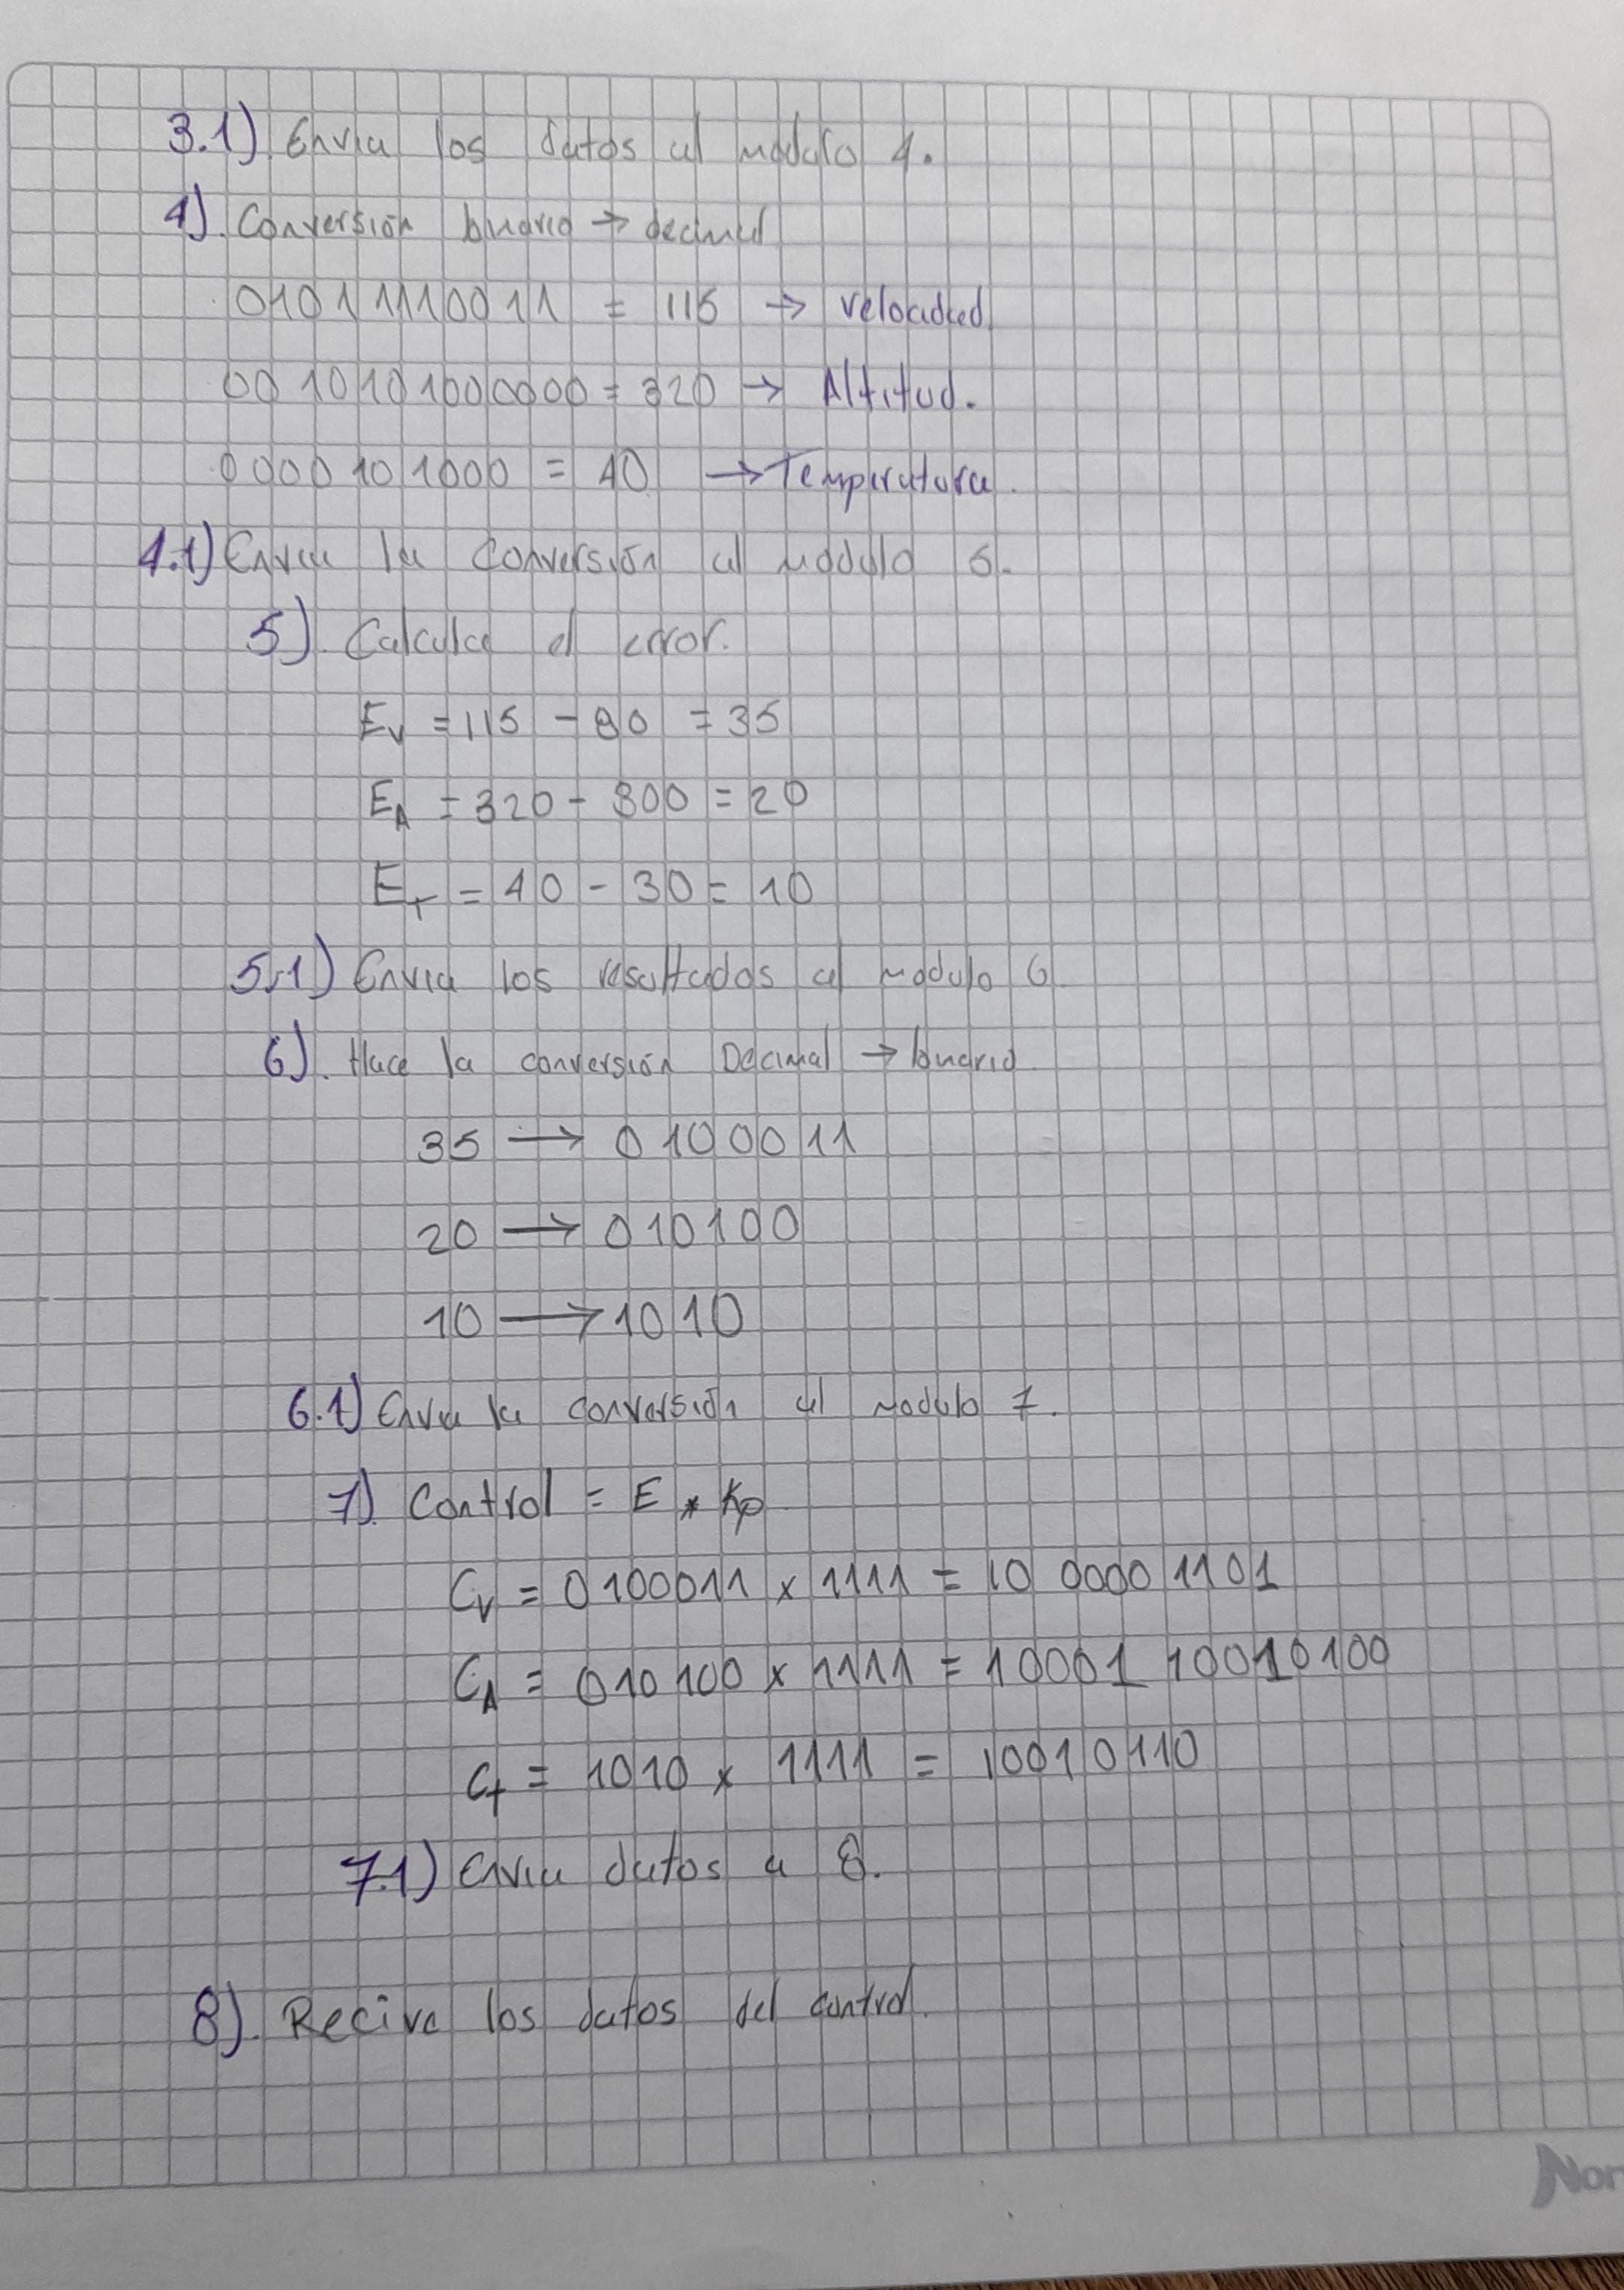 3.1) Envia los datos al modulo 4.
4). Conversión binario → decimal
010111110011 = 115 → velocidad
0010101000000 = 320 → Altitud.
0000101000 = 40 → Temperatura.
4.1) Envia la conversión al modulo 5.
5). Calcula el error.
Ev = 115 - 80 = 35
EA = 320 - 300 = 20
ET = 40 - 30 = 10
5.1) Envia los resultados al modulo 6
6). Hace la conversión Decimal → binario.
35 → 0100011
20 → 010100
10 → 1010
6.1) Envia la conversión al modulo 7.
7). Control = E * Kp
Cv = 0100011 x 1111 = 10 0000 1101
CA = 010100 x 1111 = 10001 10010100
Ct = 1010 x 1111 = 10010110
7.1) Envia datos a 8.
8). Recive los datos del control.
Nor